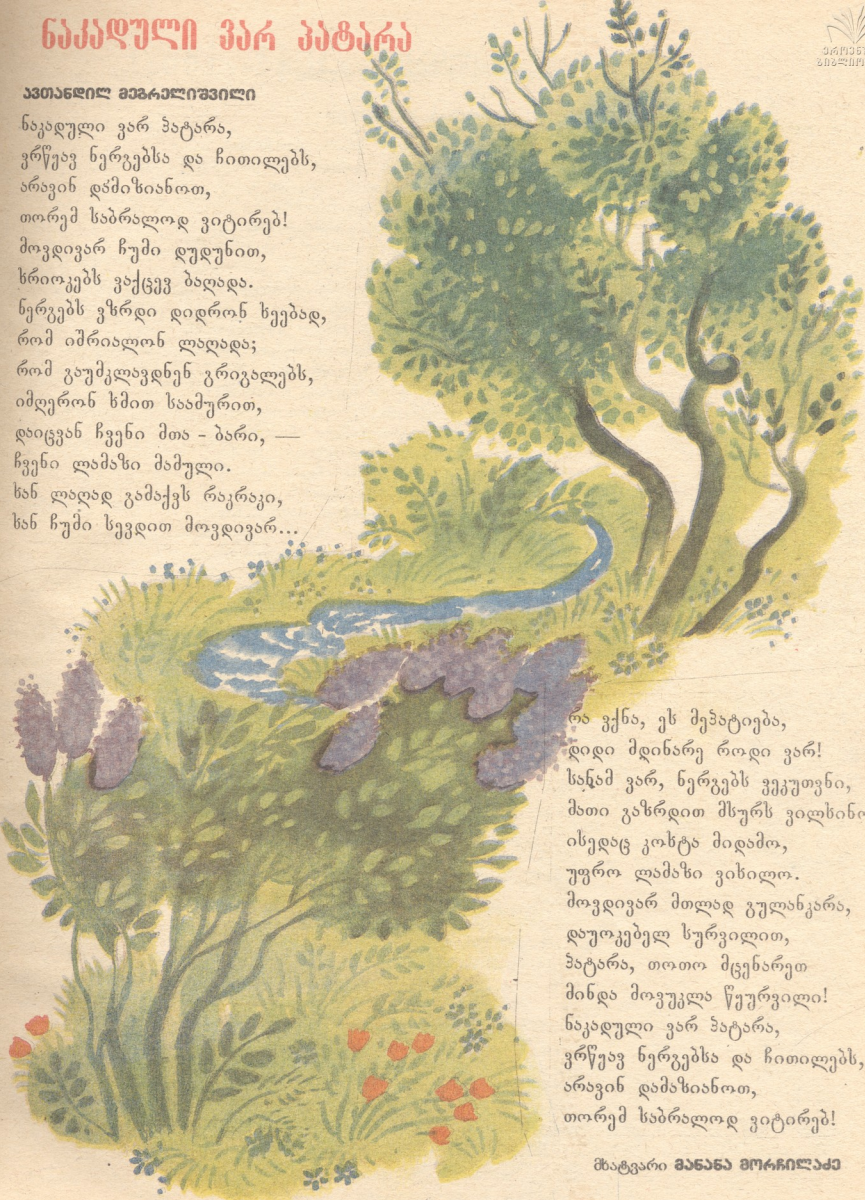 ნაკადული ვარ პატარა
ავთანდილ მეგრელიშვილი
ნაკადული ვარ პატარა,
ვრწყავ ნერგებსა და ჩითილებს,
არავინ დამიზიანოთ,
თორემ საბრალოდ ვიტირებ!
მოვდივარ ჩუმი დუდუნით,
ხრიოკებს ვაქცევ ბაღადა.
ნერგებს ვზრდი დიდრონ ხეებად,
რომ იშრიალონ ლაღადა;
რომ გაუმკლავდნენ გრიგალებს,
იმღერონ ხმით საამურით,
დაიცვან ჩვენი მთა - ბარი, —
ჩვენი ლამაზი მამული.
ხან ლაღად გამაქვს რაკრაკი,
ხან ჩუმი სევდით მოვდივარ...
რა ვქნა, ეს მეპატიება,
დიდი მდინარე როდი ვარ!
სანამ ვარ, ნერგებს ვეკუთვნი,
მათი გაზრდით მსურს ვილხინო
ისედაც კოხტა მიდამო,
უფრო ლამაზი ვიხილო.
მოვდივარ მთლად გულანკარა,
დაუოკებელ სურვილით,
პატარა, თოთო მცენარეთ
მინდა მოვუკლა წყურვილი!
ნაკადული ვარ პატარა,
ვრწყავ ნერგებსა და ჩითილებს,
არავინ დამაზიანოთ,
თორემ საბრალოდ ვიტირებ!
მხატვარი მანანა მორჩილაძე